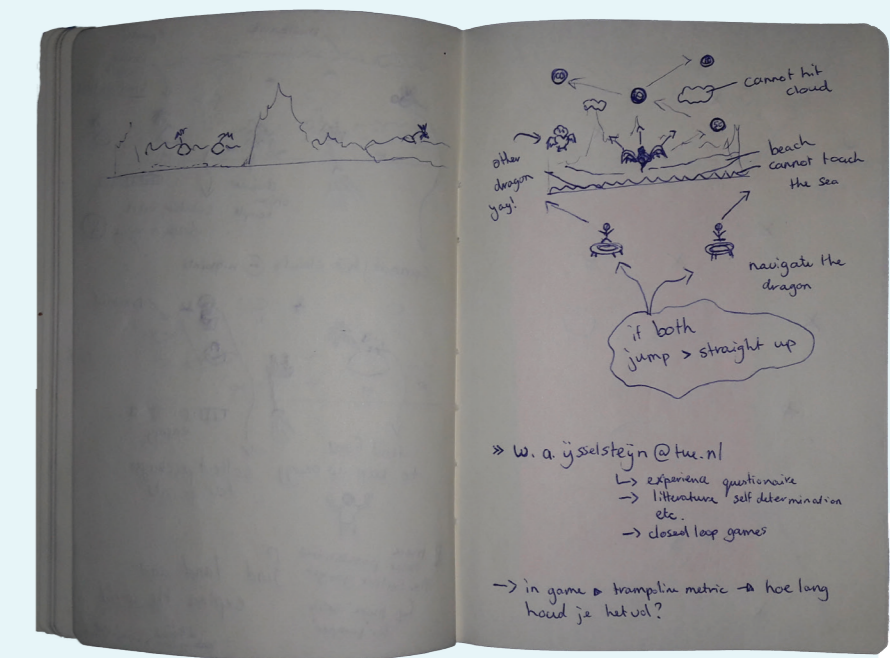 cannot hit
cloud
other
dragon
yay!
beach
cannot touch
the sea
navigate the
dragon
if both
jump > straight up
» w.a.ijsselsteijn@tue.nl
↳ experience questionaire
→ litterature self determination
etc.
→ closed loop games
→ in game ▸ trampoline metric → hoe lang
houd je het vol?